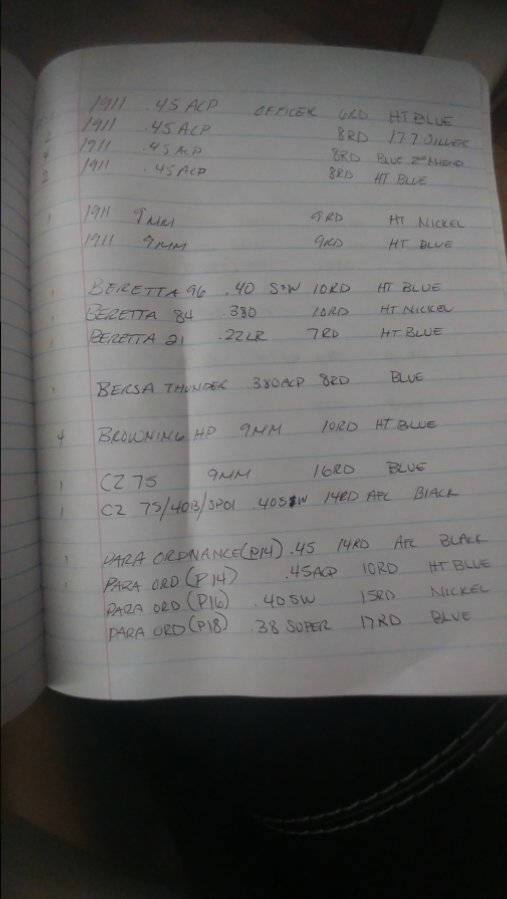 1911 .45 ACP OFFICER 6RD HT BLUE
2 1911 .45 ACP 8RD 17.7 SILVER
4 1911 .45 ACP 8RD BLUE
2 1911 .45 ACP 8RD HT BLUE
1 1911 9MM 9RD HT NICKEL
1911 9MM 9RD HT BLUE
1 BERETTA 96 .40 S&W 10RD HT BLUE
1 BERETTA 84 .380 10RD HT NICKEL
1 BERETTA 21 .22LR 7RD HT BLUE
1 BERSA THUNDER .380ACP 8RD BLUE
4 BROWNING HP 9MM 10RD HT BLUE
1 CZ 75 9MM 16RD BLUE
1 CZ 75/40B/SP01 .40S&W 14RD AFC BLACK
1 PARA ORDNANCE(P14) .45 14RD AFC BLACK
1 PARA ORD (P14) .45ACP 10RD HT BLUE
PARA ORD (P16) .40SW 15RD NICKEL
PARA ORD (P18) .38 SUPER 17RD BLUE